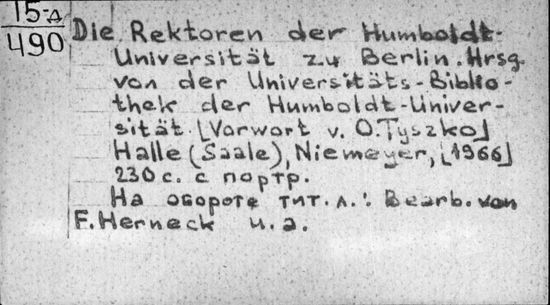 15-Д
490
Die Rektoren der Humboldt-
Universität zu Berlin. Hrsg.
von der Universitäts-Biblio-
thek der Humboldt-Univer-
sität. [Vorwort v. O. Tyszko]
Halle (Saale), Niemeyer, [1966]
230 с. с портр.
На обороте тит. л.: Bearb. von
F. Herneck u. a.